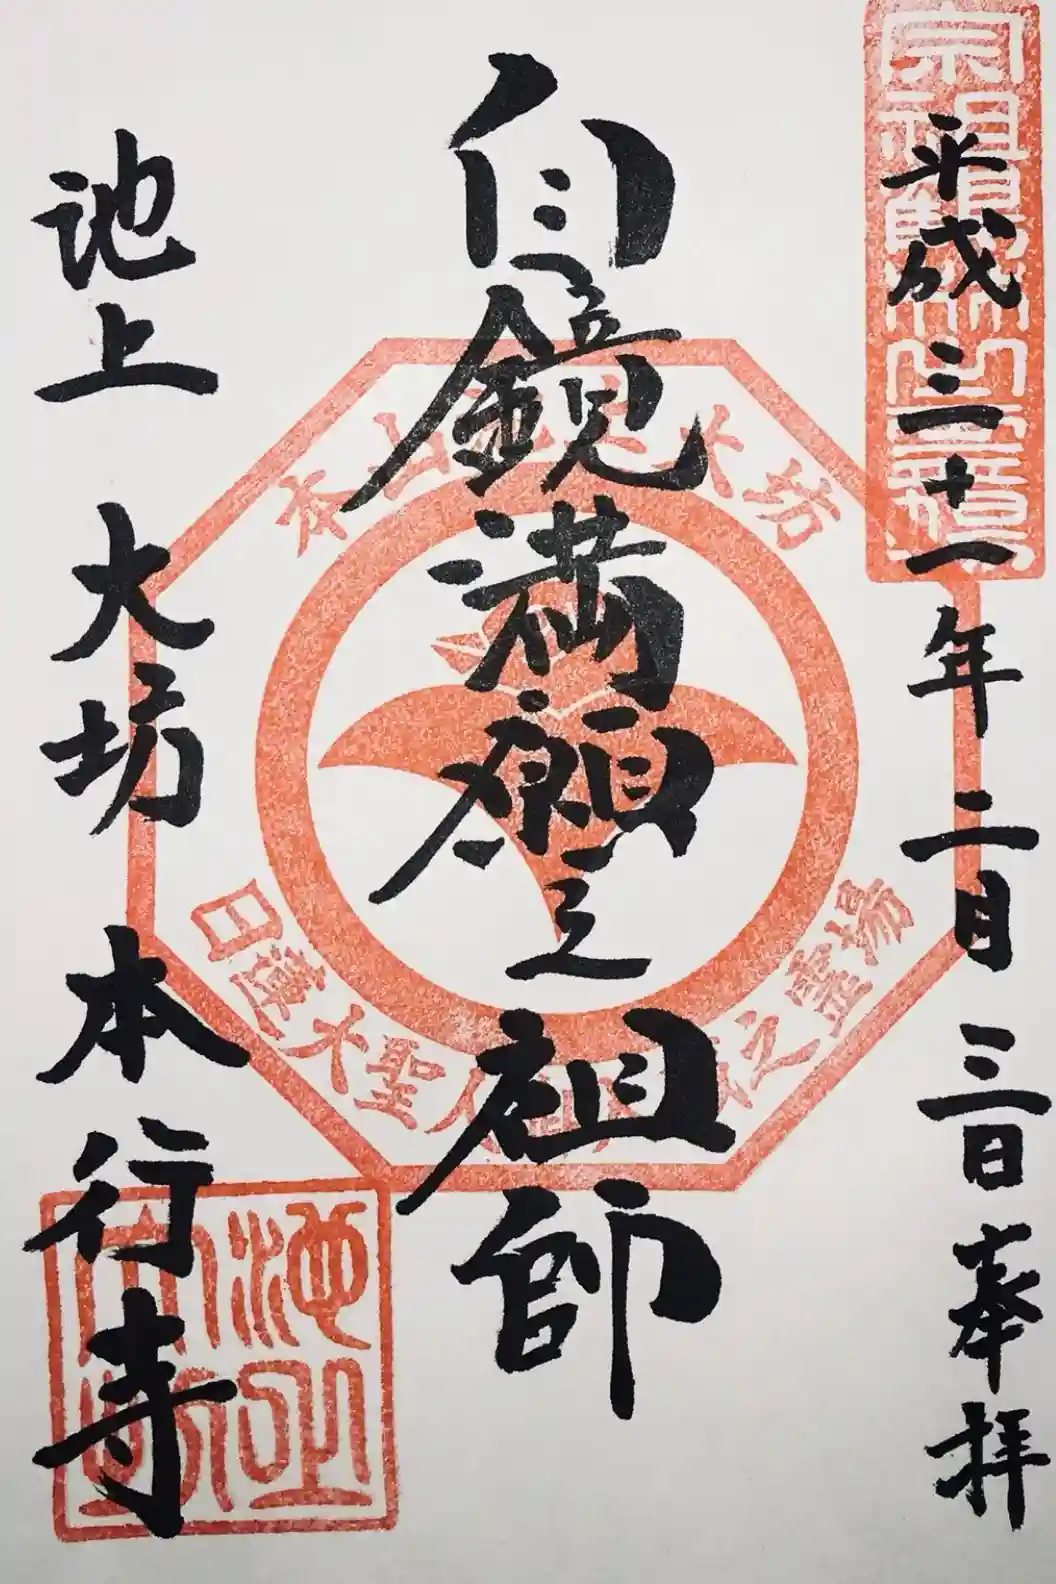 平成三十一年二月三日奉拝
自鏡満願之祖師
池上 大坊 本行寺
宗祖
本山 大坊
日蓮大聖人 之霊場
池上大坊